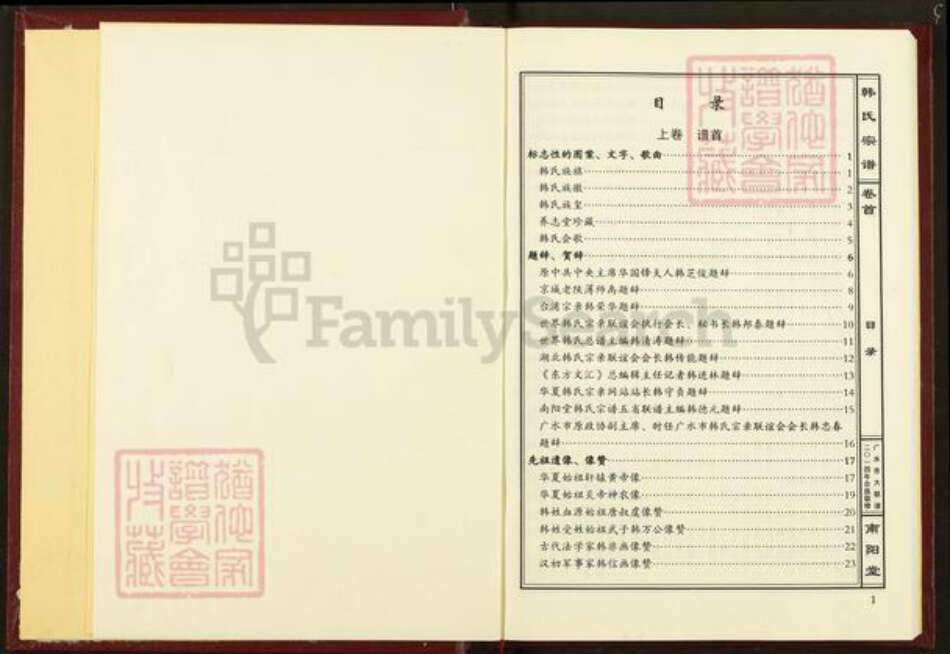 目 录
上卷 谱首
标志性的图案、文字、歌曲 1
韩氏族旗 1
韩氏族徽 2
韩氏族皇 3
养志堂珍藏 4
韩氏会歌 5
题辞、贺辞 6
原中共中央主席华国锋夫人韩芝俊题辞 6
京城老陕薄师高题辞 8
台湾宗亲韩荣华题辞 9
世界韩氏宗亲联谊会执行会长、秘书长韩邦泰题辞 10
世界韩氏总谱主编韩清涛题辞 11
湖北韩氏宗亲联谊会会长韩传能题辞 12
《东方文汇》总编辑主任记者韩进林题辞 13
华夏韩氏宗亲网站站长韩守贞题辞 14
南阳堂韩氏宗谱五省联谱主编韩德元题辞 15
广水市原政协副主席、时任广水市韩氏宗亲联谊会会长韩忠春
题辞 16
先祖遗像、像赞 17
华夏始祖轩辕黄帝像 17
华夏始祖炎帝神农像 19
韩姓血源始祖唐叔虞像赞 20
韩姓受姓始祖武子韩万公像赞 21
古代法学家韩非画像赞 22
汉初军事家韩信画像赞 23
韩氏宗谱
卷首
目录
南阳堂
1
FamilySearch